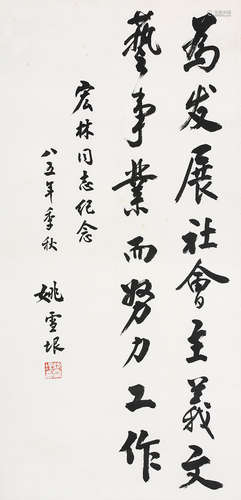 為发展社會主義文
藝事業而努力工作
宏林同志纪念
八五年季秋
姚雪垠